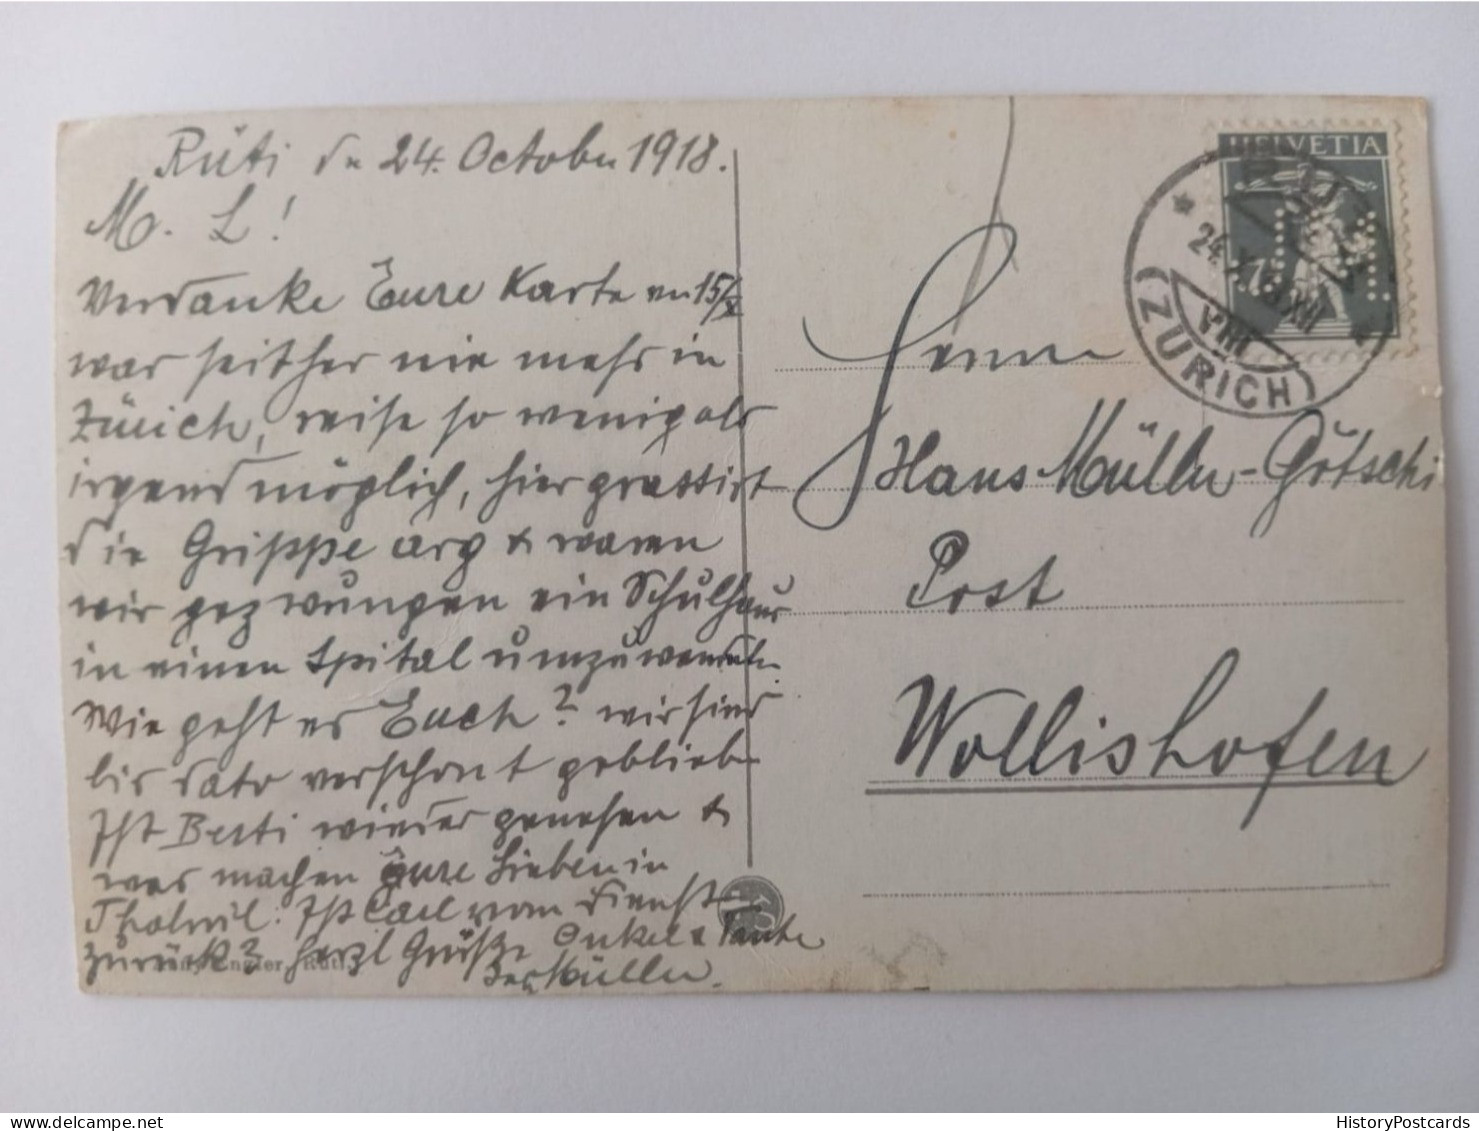 Rüti de 24. October 1918.
M. L!
Verdanke Eure Karte von 15/X
war seither nie mehr in
Zürich, reise so wenig als
irgend möglich, hier grassirt
die Grippe arg & waren
wir gezwungen ein Schulhaus
in einen Spital umzuwandeln.
Wie geht es Euch? wir sind
bis dato verschont geblieben
Ist Berti wieder genesen &
was machen Eure Lieben in
Thalwil. Ist Carl vom Dienst
zurück? herzl Grüße Onkel & Tante
Müller.
HELVETIA
7½
RÜTI
24.X.18.XII
VIII
(ZÜRICH)
Herrn
Hans Müller-Götschi
Post
Wollishofen
HistoryPostcards